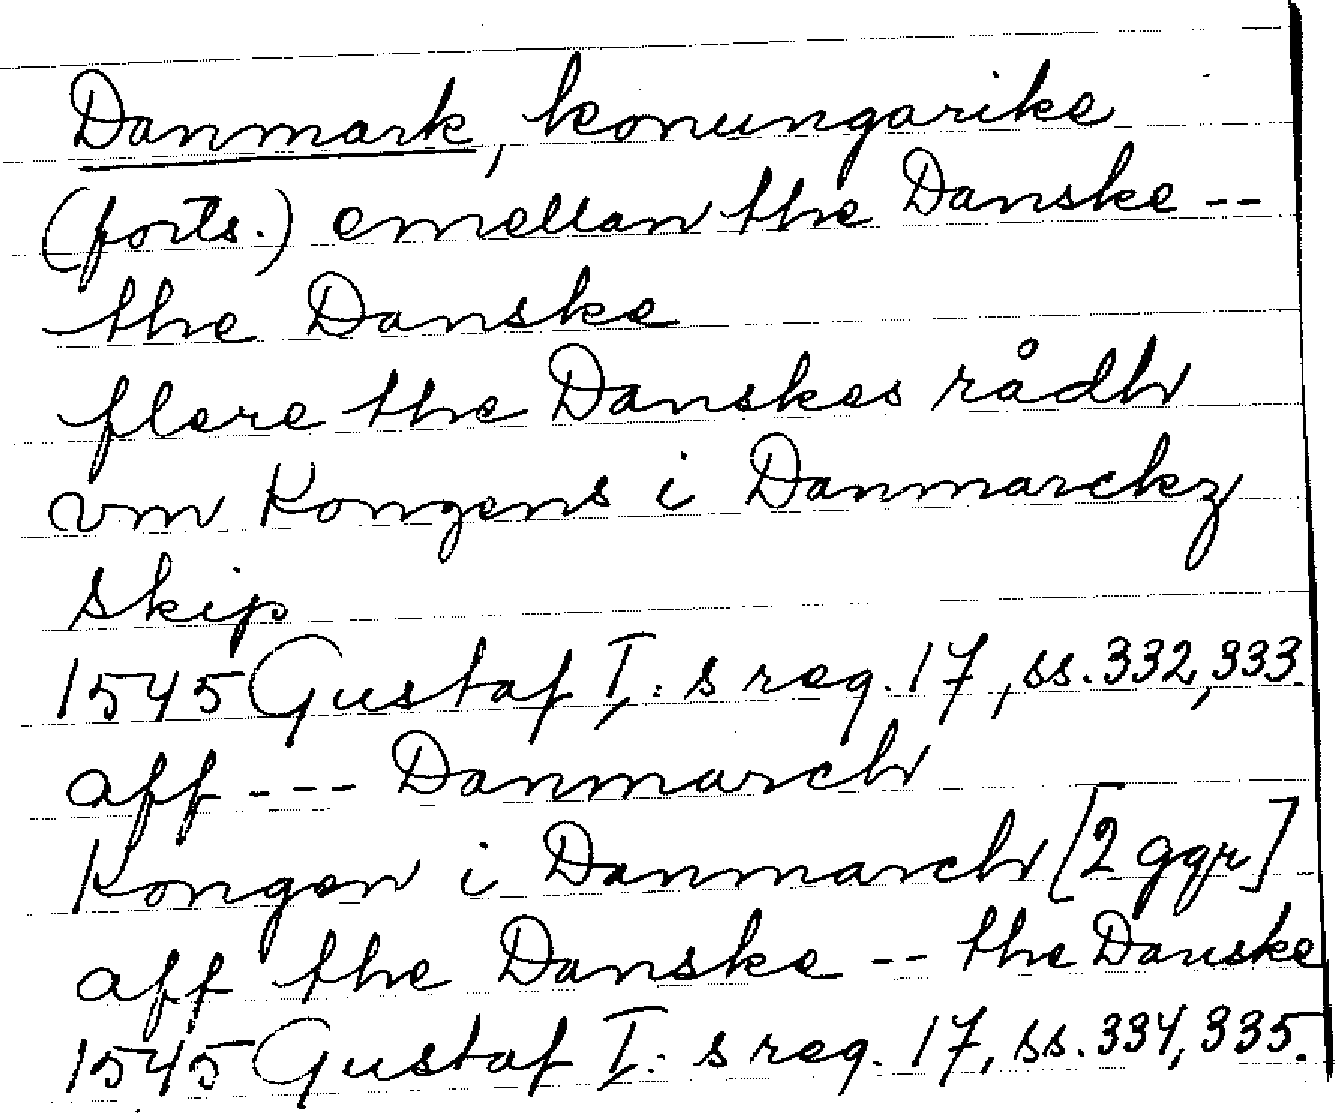 Danmark, konungarike
(forts.) emellan the Danske --
the Danske
flere the Danskes rådh
vm Kongens i Danmarckz
skip
1545 Gustaf I: s reg. 17, ss. 332, 333.
aff --- Danmarch
Kongen i Danmarch [2 ggr]
aff the Danske -- the Danske
1545 Gustaf I: s reg. 17, ss. 334, 335.